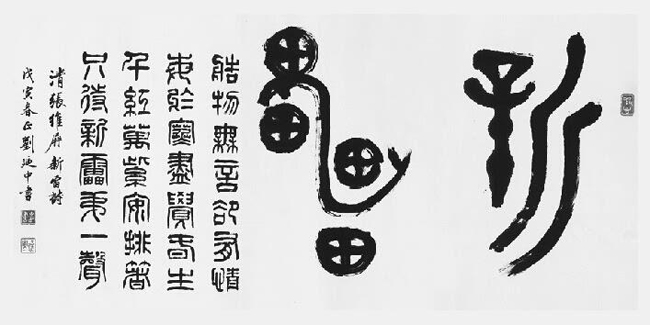 新雷
艁物無言卻有情
每於寒盡覺春生
千紅萬紫安排箸
只待新靁弟一聲
清張維屏新雷詩
戊寅春正劉迺中書